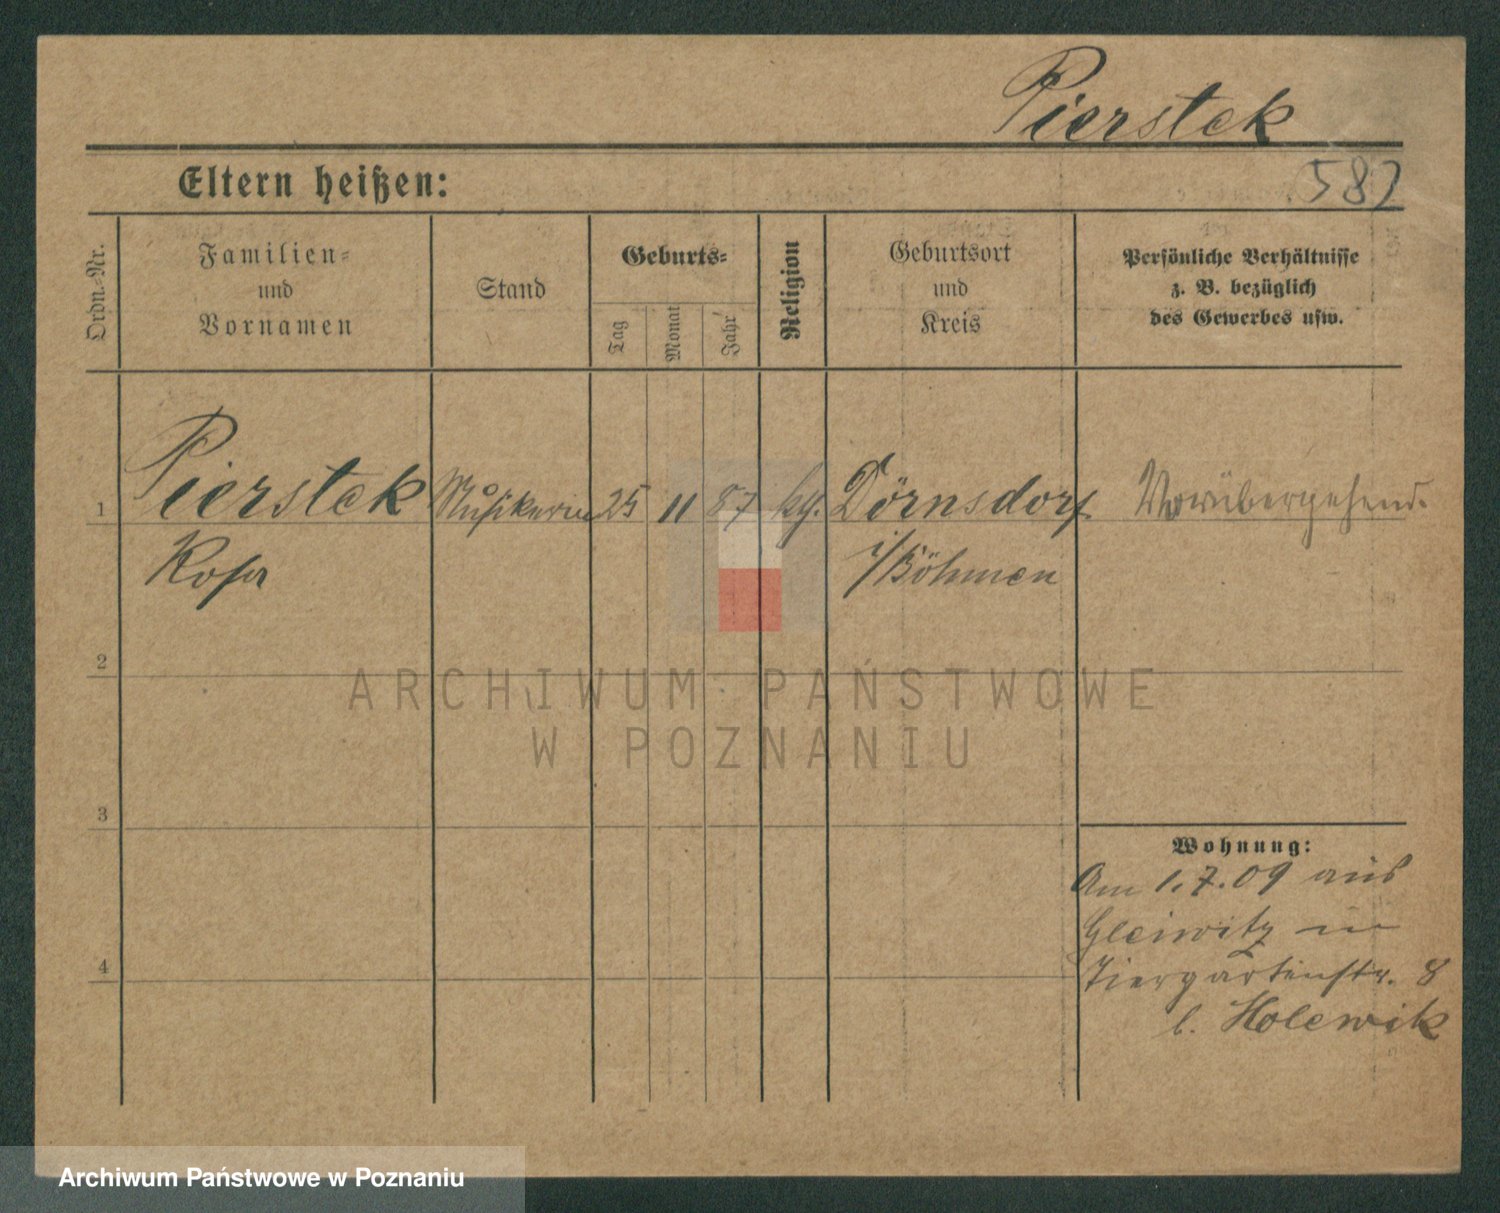 Pierstek
582
Eltern heißen:
Ordn.-Nr.
Familien-
und
Vornamen
Stand
Geburts-
Tag
Monat
Jahr
Religion
Geburtsort
und
Kreis
Persönliche Verhältnisse
z. B. bezüglich
des Gewerbes usw.
1 Pierstek Musikerin 25 11 87 kg. Dörnsdorf Vorübergehend.
Rosa i/Böhmen
2
ARCHIWUM PAŃSTWOWE
W POZNANIU
3
Wohnung:
Am 1.7.09 aus
Gleiwitz in
4
Tiergartenstr. 8
b. Holewik
Archiwum Państwowe w Poznaniu